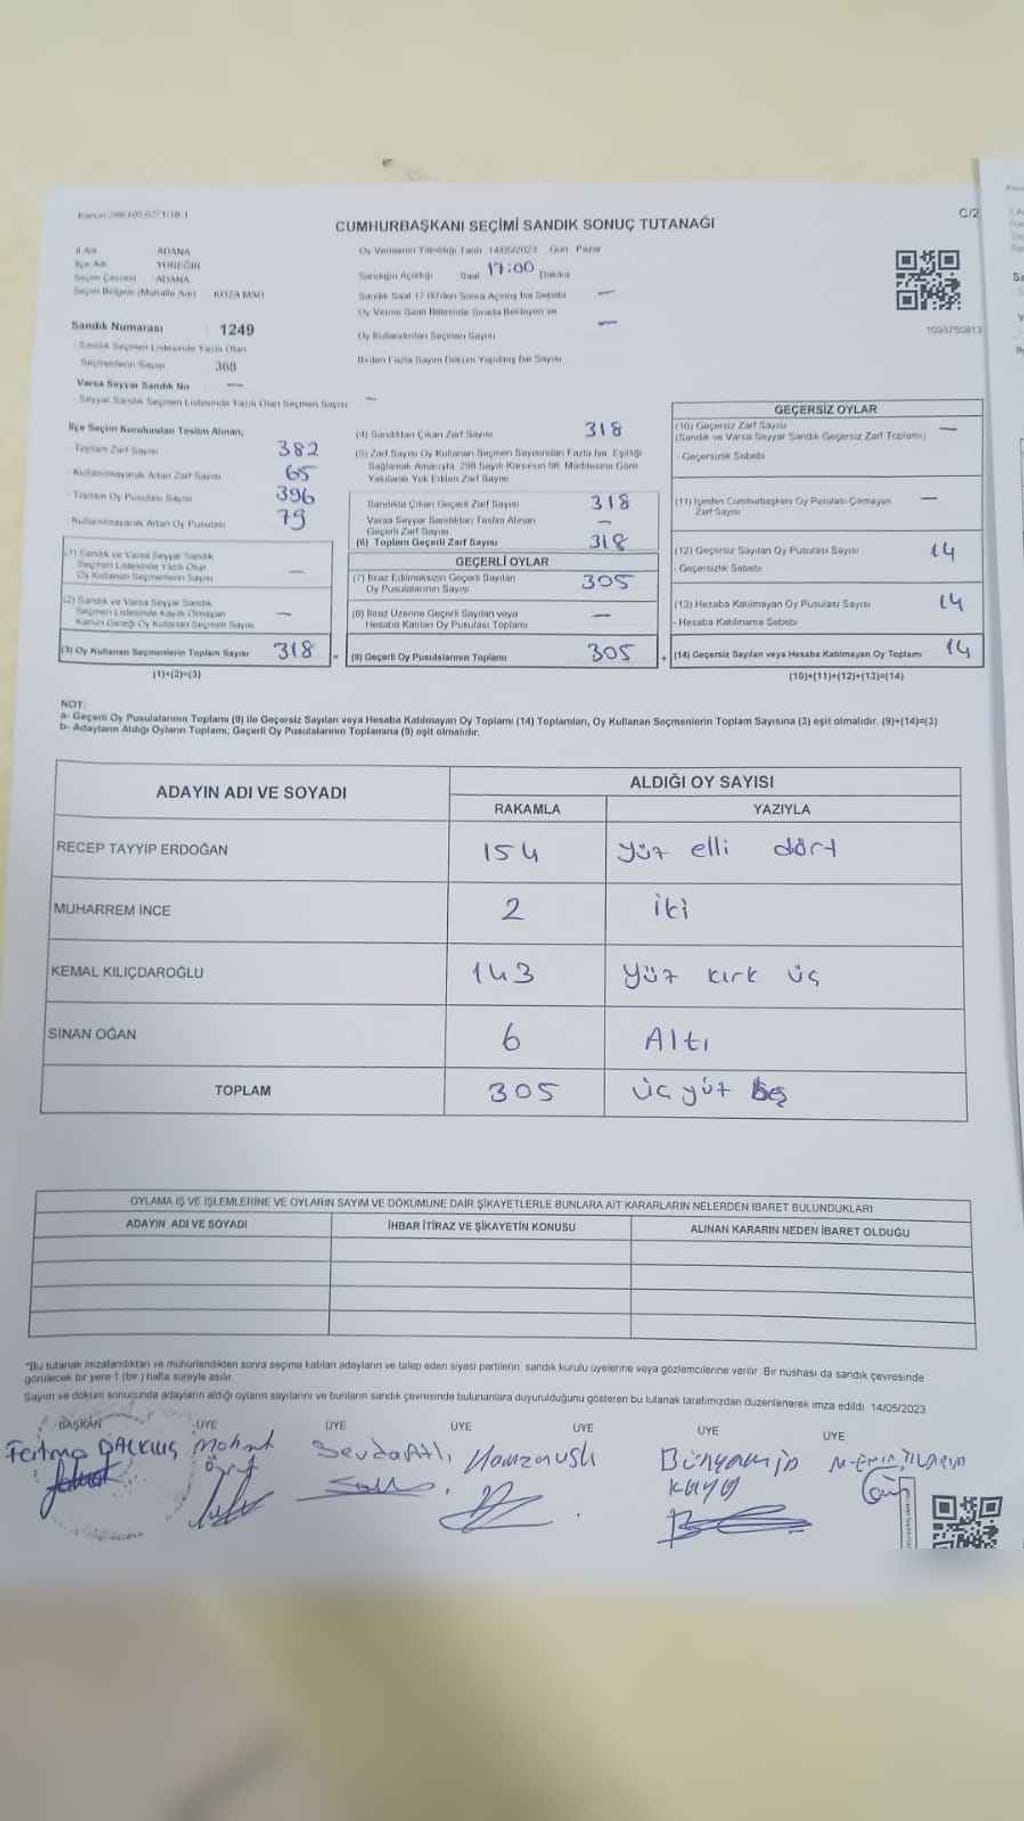 C/2
CUMHURBAŞKANI SEÇİMİ SANDIK SONUÇ TUTANAĞI
İl Adı ADANA
İlçe Adı YÜREĞİR
Seçim Çevresi ADANA
Seçim Bölgesi (Muhalle Adı) KOZA MAH
Sandık Numarası 1249
Sandık Seçmen Listesinde Yazılı Olan
Seçmenlerin Sayısı 368
Varsa Seyyar Sandık No —
Seyyar Sandık Seçmen Listesinde Yazılı Olan Seçmen Sayısı —
Oy Vermenin Yapıldığı Tarih 14/05/2023 Gün Pazar
Sandığın Açıldığı Saat 17:00 Dakika
Sandık Saat 17 00'den Sonra Açılmış İse Sebebi —
Oy Verme Saati Bitiminde Sırada Bekleyen ve —
Oy Kullandırılan Seçmen Sayısı
Birden Fazla Sayım Döküm Yapılmış İse Sayısı
İlçe Seçim Kurulundan Teslim Alınan;
Toplam Zarf Sayısı 382
Kullanılmayarak Artan Zarf Sayısı 65
Toplam Oy Pusulası Sayısı 396
Kullanılmayarak Artan Oy Pusulası 79
(1) Sandık ve Varsa Seyyar Sandık
Seçmen Listesinde Yazılı Olup
Oy Kullanan Seçmenlerin Sayısı —
(2) Sandık ve Varsa Seyyar Sandık
Seçmen Listesinde Kayıtlı Olmayan
Kanun Gereği Oy Kullanan Seçmen Sayısı —
(3) Oy Kullanan Seçmenlerin Toplam Sayısı 318
(1)+(2)=(3)
(4) Sandıktan Çıkan Zarf Sayısı 318
(5) Zarf Sayısı Oy Kullanan Seçmen Sayısından Fazla İse, Eşitliği
Sağlamak Amacıyla, 298 Sayılı Kanunun 98. Maddesine Göre
Yakılarak Yok Edilen Zarf Sayısı
Sandıkta Çıkan Geçerli Zarf Sayısı 318
Varsa Seyyar Sandıktan Teslim Alınan
Geçerli Zarf Sayısı —
(6) Toplam Geçerli Zarf Sayısı 318
GEÇERLİ OYLAR
(7) İtiraz Edilmeksizin Geçerli Sayılan
Oy Pusulalarının Sayısı 305
(8) İtiraz Üzerine Geçerli Sayılan veya
Hesaba Katılan Oy Pusulası Toplamı —
(9) Geçerli Oy Pusulalarının Toplamı 305
GEÇERSİZ OYLAR
(10) Geçersiz Zarf Sayısı —
(Sandık ve Varsa Seyyar Sandık Geçersiz Zarf Toplamı)
- Geçersizlik Sebebi
(11) İçinden Cumhurbaşkanı Oy Pusulası Çıkmayan —
Zarf Sayısı
(12) Geçersiz Sayılan Oy Pusulası Sayısı 14
- Geçersizlik Sebebi
(13) Hesaba Katılmayan Oy Pusulası Sayısı 14
- Hesaba Katılmama Sebebi
(14) Geçersiz Sayılan veya Hesaba Katılmayan Oy Toplamı 14
(10)+(11)+(12)+(13)=(14)
NOT:
a- Geçerli Oy Pusulalarının Toplamı (9) ile Geçersiz Sayılan veya Hesaba Katılmayan Oy Toplamı (14) Toplamları, Oy Kullanan Seçmenlerin Toplam Sayısına (3) eşit olmalıdır. (9)+(14)=(3)
b- Adayların Aldığı Oyların Toplamı, Geçerli Oy Pusulalarının Toplamına (9) eşit olmalıdır.
ADAYIN ADI VE SOYADI ALDIĞI OY SAYISI
RAKAMLA YAZIYLA
RECEP TAYYİP ERDOĞAN 154 yüz elli dört
MUHARREM İNCE 2 iki
KEMAL KILIÇDAROĞLU 143 yüz kırk üç
SİNAN OĞAN 6 Altı
TOPLAM 305 üç yüz beş
OYLAMA İŞ VE İŞLEMLERİNE VE OYLARIN SAYIM VE DÖKÜMÜNE DAİR ŞİKAYETLERLE BUNLARA AİT KARARLARIN NELERDEN İBARET BULUNDUKLARI
ADAYIN ADI VE SOYADI İHBAR İTİRAZ VE ŞİKAYETİN KONUSU ALINAN KARARIN NEDEN İBARET OLDUĞU
*Bu tutanak imzalandıktan ve mühürlendikten sonra seçime katılan adayların ve talep eden siyasi partilerin sandık kurulu üyelerine veya gözlemcilerine verilir. Bir nüshası da sandık çevresinde
görülecek bir yere 1 (bir) hafta süreyle asılır.
Sayım ve döküm sonucunda adayların aldığı oyların sayılarını ve bunların sandık çevresinde bulunanlara duyurulduğunu gösteren bu tutanak tarafımızdan düzenlenerek imza edildi. 14/05/2023
BAŞKAN ÜYE ÜYE ÜYE ÜYE ÜYE ÜYE
Fatma Sevda Atlı Hamza Uslu Bünyamin
Kaya